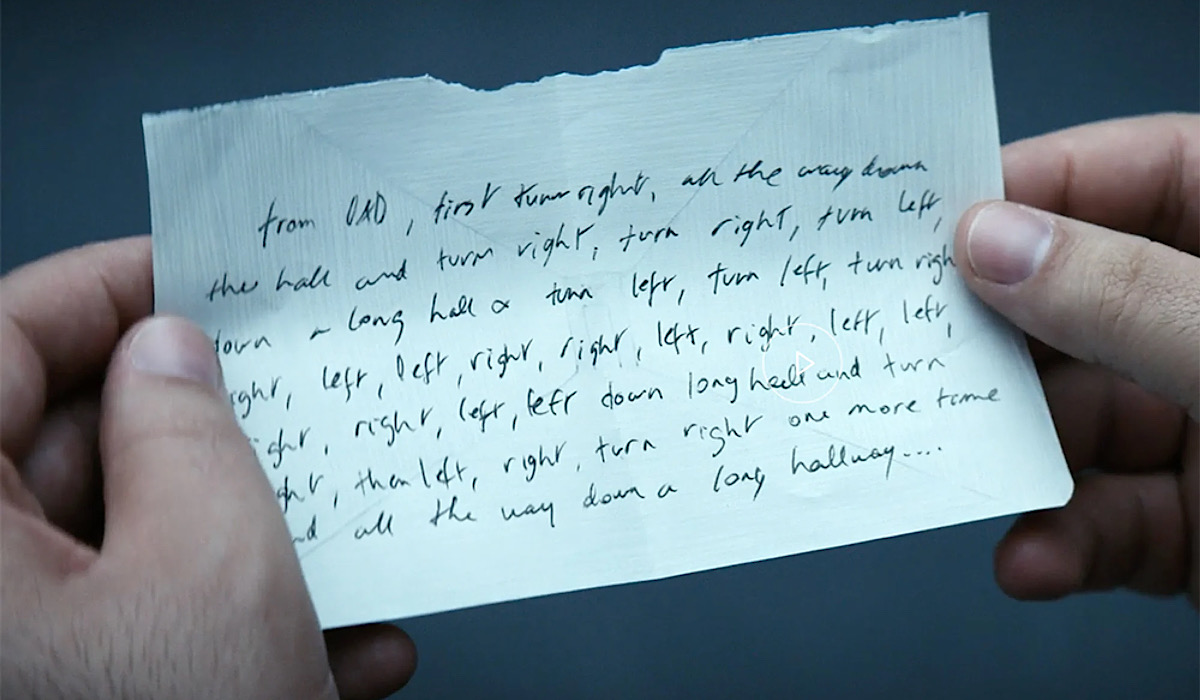 from DAD, first turn right, all the way down
the hall and turn right, turn right, turn left,
down a long hall & turn left, turn left, turn righ
ight, left, left, right, right, left, right, left, left,
ight, right, left, left down long hall and turn
ght, then left, right, turn right one more time
nd all the way down a long hallway....